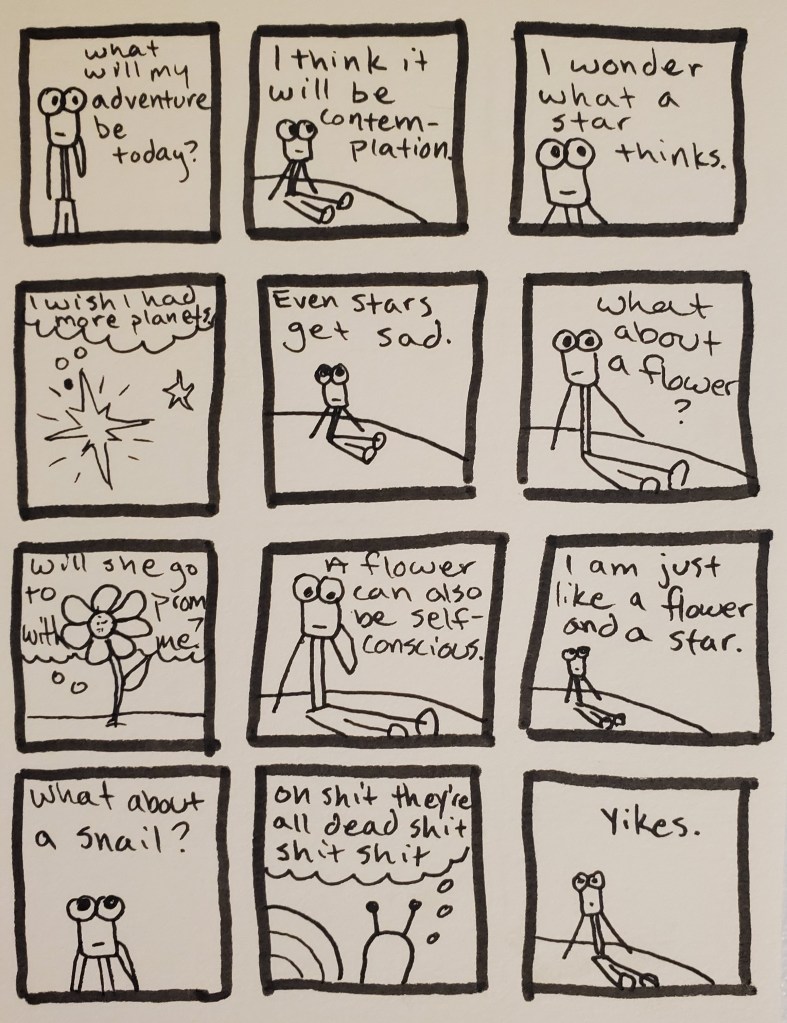 what
will my
adventure
be
today?
I think it
will be
contem-
plation.
I wonder
what a
star
thinks.
I wish I had
more planets.
Even stars
get sad.
what
about
a flower
?
will she go
to prom
with me?
A flower
can also
be self-
conscious.
I am just
like a flower
and a star.
What about
a snail?
oh shit they're
all dead shit
shit shit
Yikes.